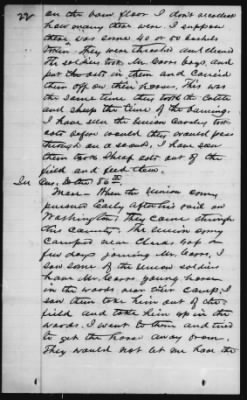 22
on the barn floor I don't recollect
how many there were. I suppose
there was some 40 or 50 bushels
They were threshed and cleaned
The soldiers took Mr. Coors bags, and
put the oats in them and carried
them off on their horses. This was
the same time they took the cattle
and sheep the time of the burning.
I have seen the Union Cavalry took
oats before would they would pass
through on a scout, I have seen
them take sheaf oats out of the
field and feed them.
In Ans. to the 56th
Man - When the Union army
pursued Early after his raid on
Washington, they came through
this County. The Union army
camped near Gap a
few days joining Mr. Coors, I
saw some of the Union soldiers
have Mr. Coors young horse
in the woods near their camp; I
saw them take him out of the
field and take him up in the
woods. I went to them and tried
to get the horse away from.
They would not let me have the